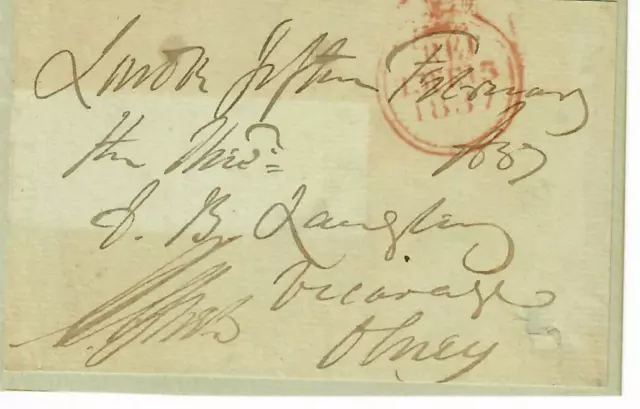 London fifteen February
The Rev.
1837
J. B. Langley
Vicarage
Olney
1837